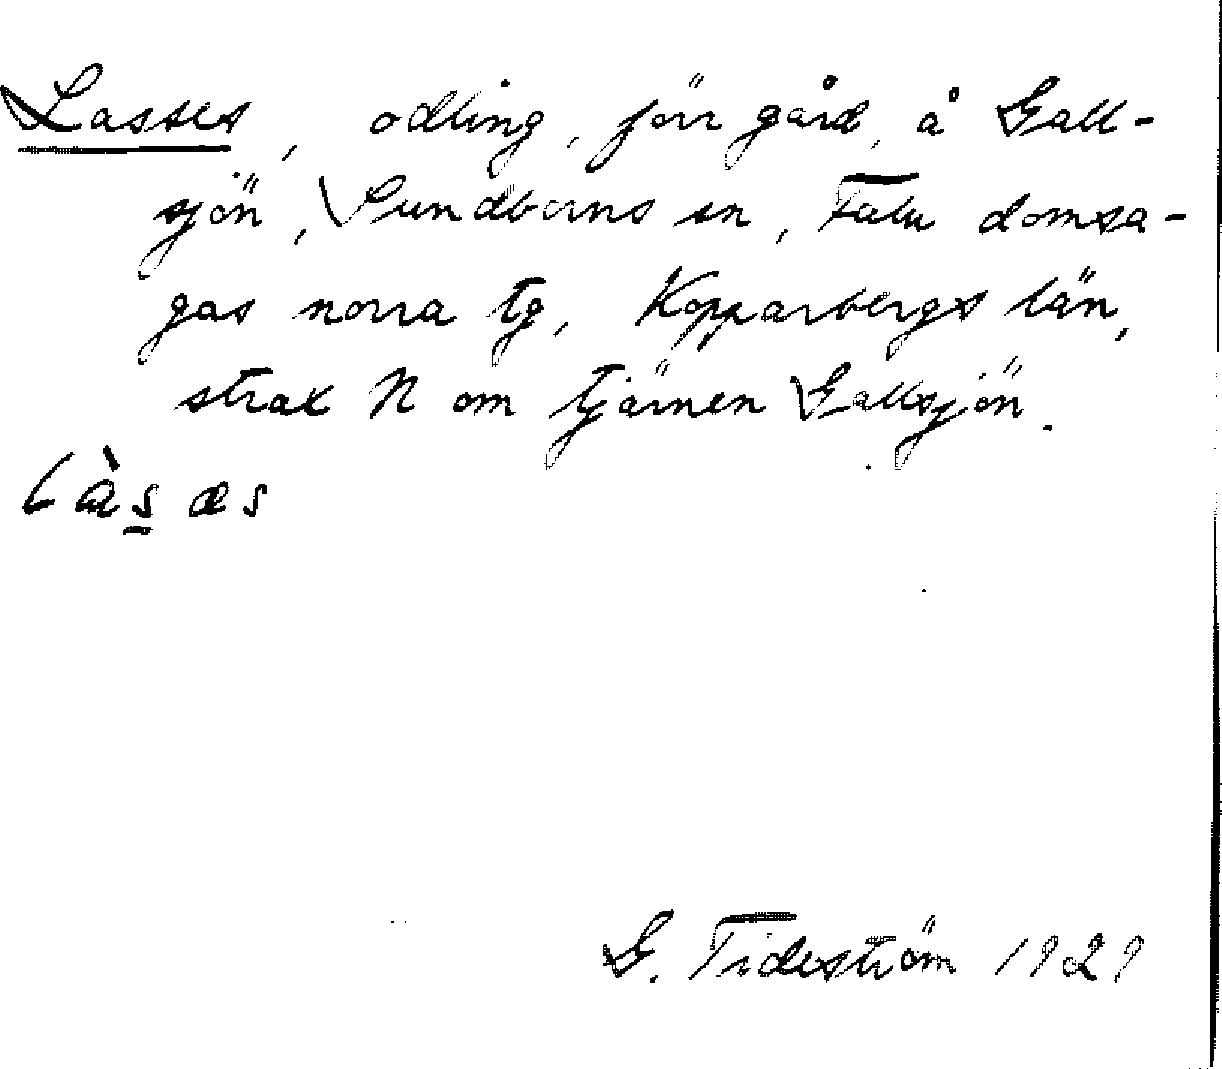 Lasses, odling, förr gård, å Gall-
sjön, Sundborns sn, Falu domsa-
gas norra tg, Kopparbergs län,
strax N om tjärnen Gallsjön.
làs̲æs
G. Tideström 1929